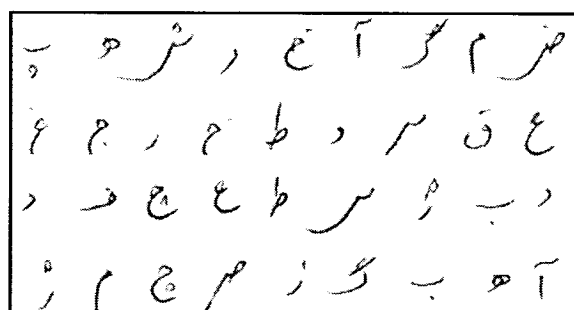 ض م گ آ غ ر ش ه پ
ع ق س د ط خ ر ج غ
د ب ژ س ط ع چ ف د
آ ه ب گ ز ص چ م ژ